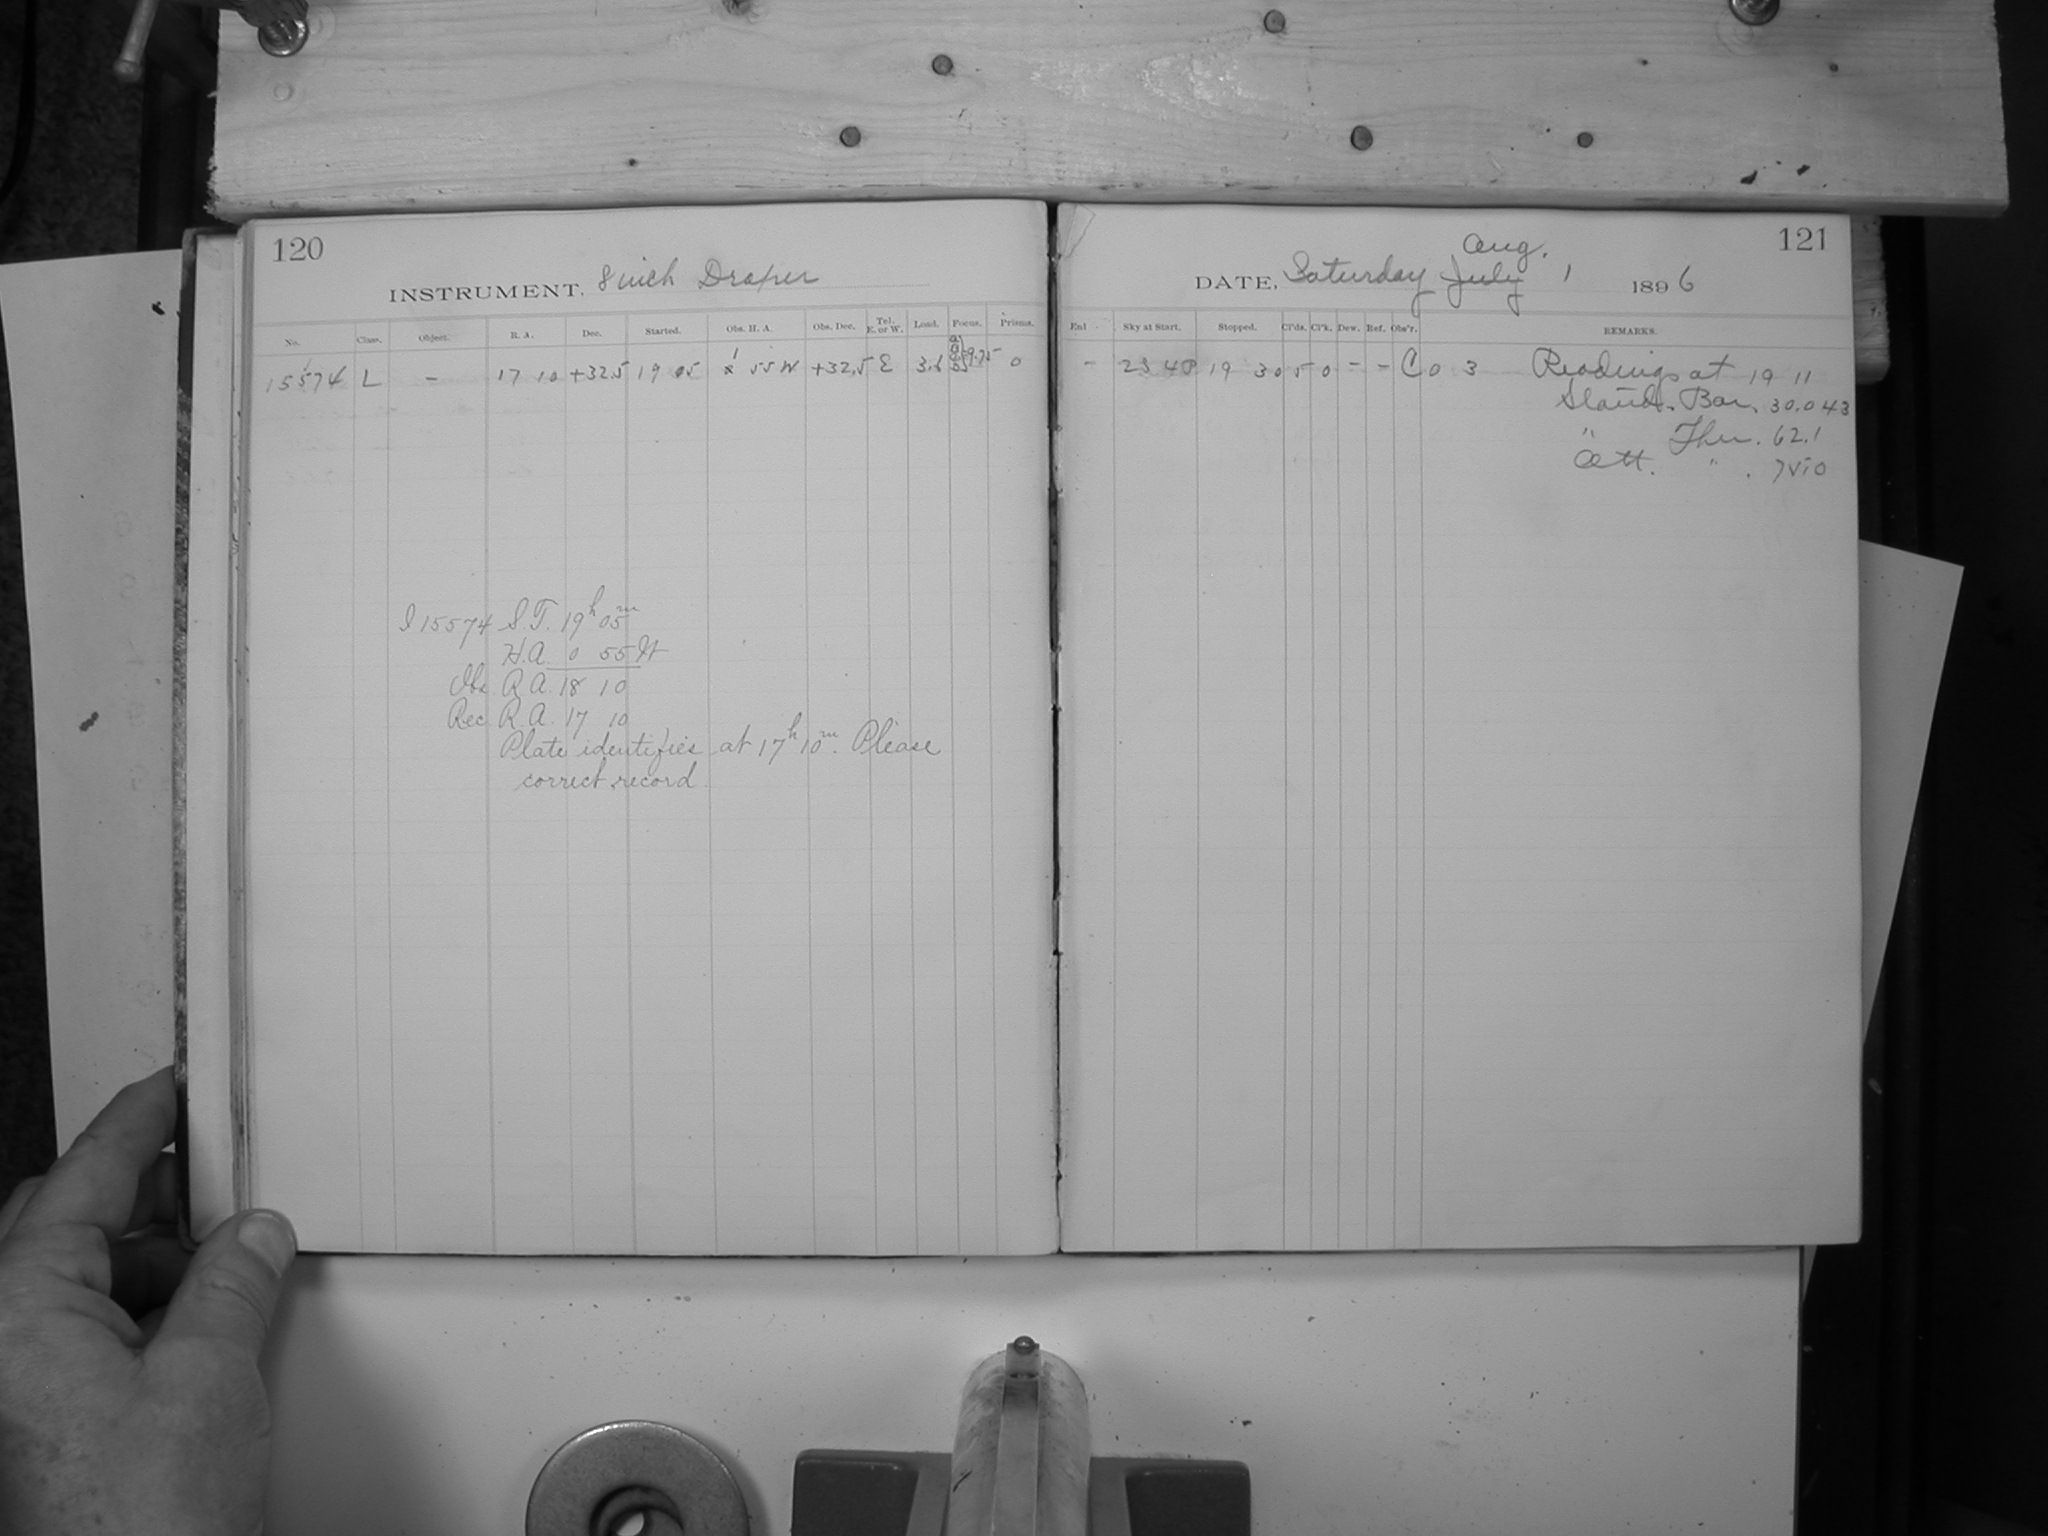 120
INSTRUMENT, 8 inch Draper
No. Class. Object. R. A. Dec. Started. Obs. H. A. Obs. Dec. Tel. E. or W. Load. Focus. Prisms.
15574 L - 17 10 +32.5 19 05 1 55 W +32.5 E 3.6 9.75 0
I 15574 S.T. 19h 05m
H.A. 0 55 W
Obs. R.A. 18 10
Rec. R.A. 17 10
Plate identifies at 17h 10m. Please
correct record.
121
Aug.
DATE, Saturday July 1 1896
Enl Sky at Start. Stopped. Cl'ds. Cl'k. Dew. Ref. Obs'r. REMARKS.
- 23 40 19 30 5 0 - - C 0 3 Readings at 19 11
Stand. Bar. 30.043
" Ther. 62.1
Att. " .